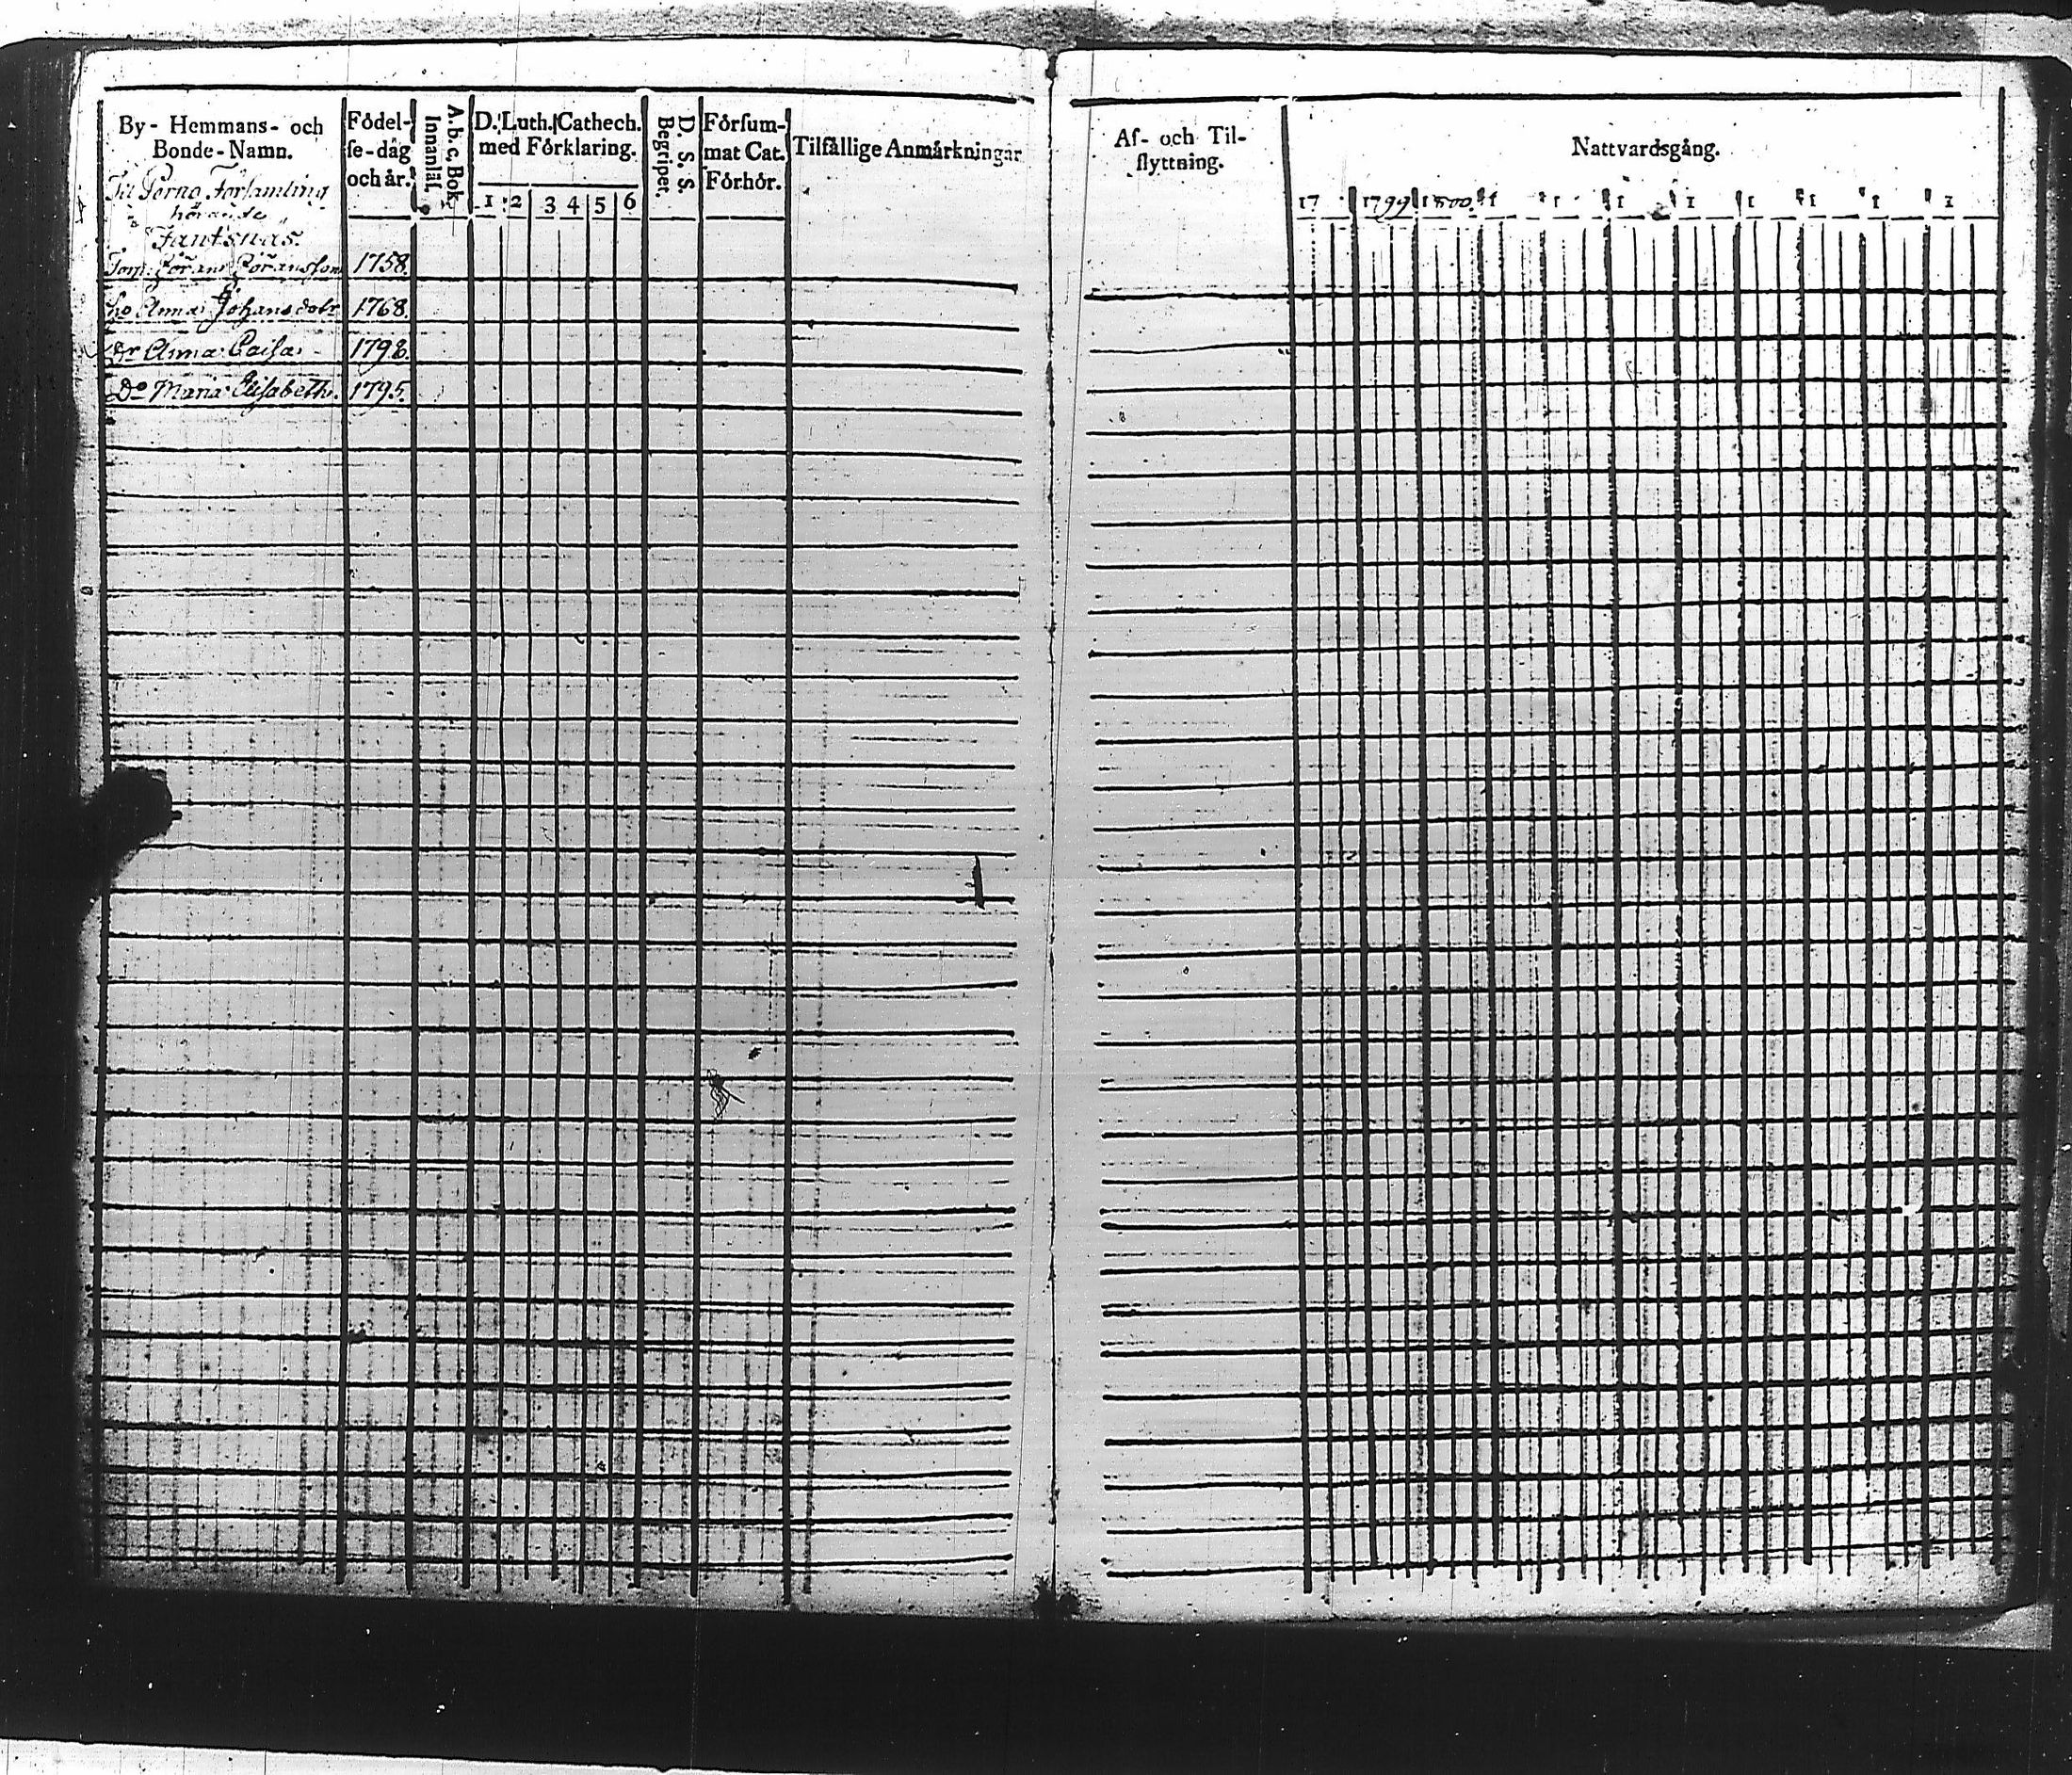 By - Hemmans - och
Bonde - Namn.
Födel-
se-dag
och år.
A. b. c. Bok.
Innanläs.
D. Luth. Cathech.
med Förklaring.
1 2 3 4 5 6
D. S. S.
Begripet.
Försum-
mat Cat.
Förhör.
Tilfällige Anmärkningar
Til Perno Församling
hörande
Jantsnäs.
Torp. Jöran Göransson 1758.
ho Anna Johansdotr 1768.
Dr Anna Caisa 1798.
Do Maria Elisabeth. 1795.
Af- och Til-
flyttning.
Nattvardsgång.
17 1799 1800. 1 1 1 1 1 1 1 1